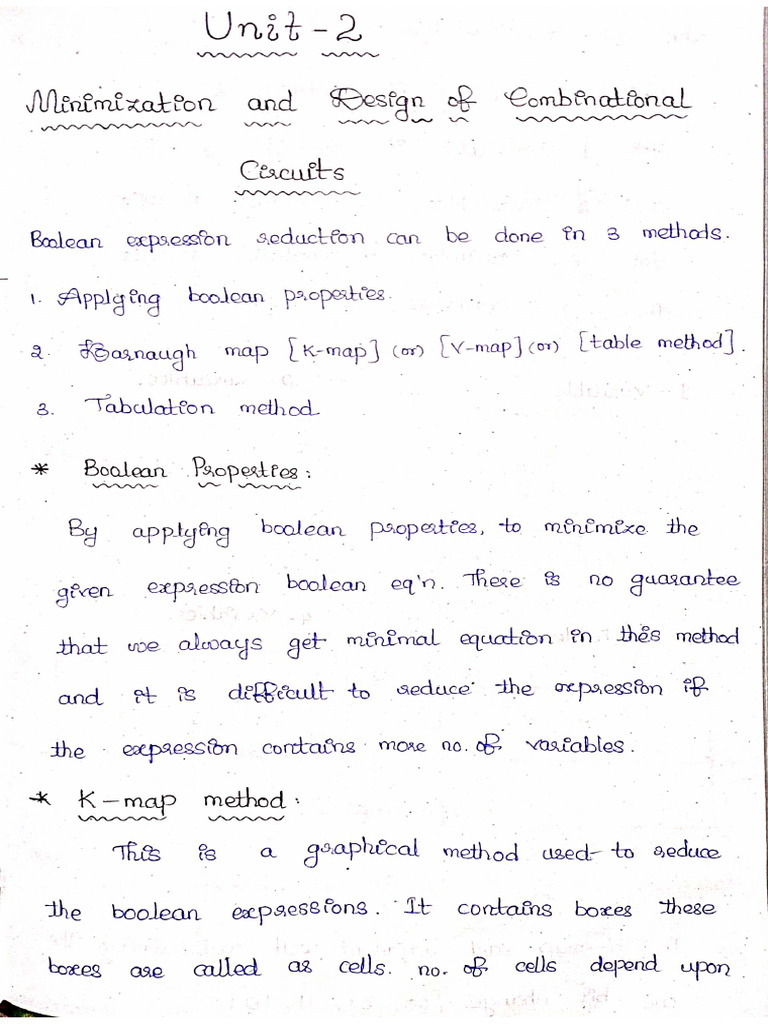 Unit-2
Minimization and Design of Combinational
Circuits
Boolean expression reduction can be done in 3 methods.
1. Applying boolean properties.
2. Karnaugh map [K-map] (or) [V-map] (or) [table method].
3. Tabulation method.
* Boolean Properties:
By applying boolean properties, to minimize the
given expression boolean eq'n. There is no guarantee
that we always get minimal equation in this method
and it is difficult to reduce the expression if
the expression contains more no. of variables.
* K-map method:
This is a graphical method used to reduce
the boolean expressions. It contains boxes these
boxes are called as cells. no. of cells depend upon